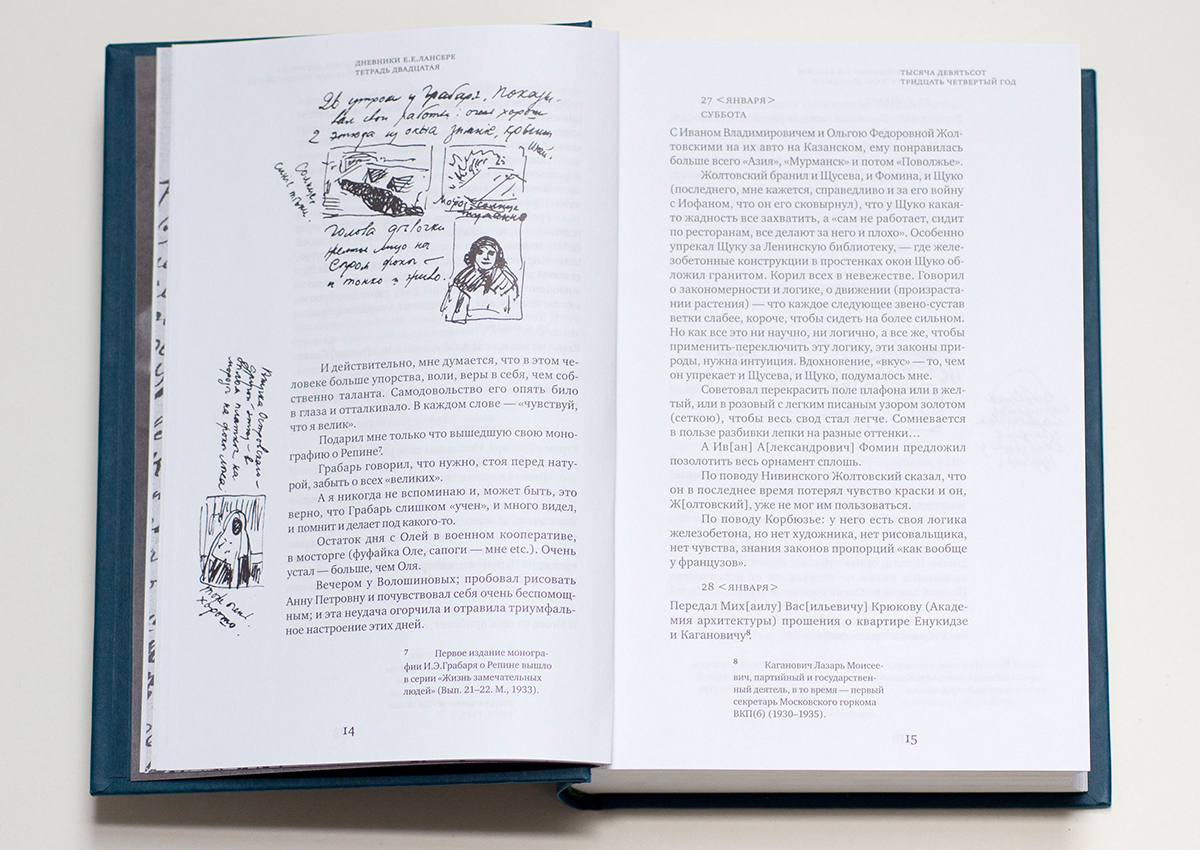 ДНЕВНИКИ Е.Е.ЛАНСЕРЕ
ТЕТРАДЬ ДВАДЦАТАЯ
26 утром у Грабаря. Показы-
вал свои работы: очень хороши
2 этюда из окна зимние,
голова девочки
желтое лицо на
сером фоне –
и тонко и живо.
И действительно, мне думается, что в этом че-
ловеке больше упорства, воли, веры в себя, чем соб-
ственно таланта. Самодовольство его опять било
в глаза и отталкивало. В каждом слове — «чувствуй,
что я велик».
Подарил мне только что вышедшую свою моно-
графию о Репине⁷.
Грабарь говорил, что нужно, стоя перед нату-
рой, забыть о всех «великих».
А я никогда не вспоминаю и, может быть, это
верно, что Грабарь слишком «учен», и много видел,
и помнит и делает под какого-то.
Остаток дня с Олей в военном кооперативе,
в мосторге (фуфайка Оле, сапоги — мне etc.). Очень
устал — больше, чем Оля.
Вечером у Волошиновых; пробовал рисовать
Анну Петровну и почувствовал себя очень беспомощ-
ным; и эта неудача огорчила и отравила триумфаль-
ное настроение этих дней.
7 Первое издание моногра-
фии И.Э.Грабаря о Репине вышло
в серии «Жизнь замечательных
людей» (Вып. 21–22. М., 1933).
14
ТЫСЯЧА ДЕВЯТЬСОТ
ТРИДЦАТЬ ЧЕТВЕРТЫЙ ГОД
27 <ЯНВАРЯ>
СУББОТА
С Иваном Владимировичем и Ольгою Федоровной Жол-
товскими на их авто на Казанском, ему понравилась
больше всего «Азия», «Мурманск» и потом «Поволжье».
Жолтовский бранил и Щусева, и Фомина, и Щуко
(последнего, мне кажется, справедливо и за его войну
с Иофаном, что он его сковырнул), что у Щуко какая-
то жадность все захватить, а «сам не работает, сидит
по ресторанам, все делают за него и плохо». Особенно
упрекал Щуку за Ленинскую библиотеку, — где желе-
зобетонные конструкции в простенках окон Щуко об-
ложил гранитом. Корил всех в невежестве. Говорил
о закономерности и логике, о движении (произраста-
нии растения) — что каждое следующее звено-сустав
ветки слабее, короче, чтобы сидеть на более сильном.
Но как все это ни научно, ни логично, а все же, чтобы
применить-переключить эту логику, эти законы при-
роды, нужна интуиция. Вдохновение, «вкус» — то, чем
он упрекает и Щусева, и Щуко, подумалось мне.
Советовал перекрасить поле плафона или в жел-
тый, или в розовый с легким писаным узором золотом
(сеткою), чтобы весь свод стал легче. Сомневается
в пользе разбивки лепки на разные оттенки…
А Ив[ан] А[лександрович] Фомин предложил
позолотить весь орнамент сплошь.
По поводу Нивинского Жолтовский сказал, что
он в последнее время потерял чувство краски и он,
Ж[олтовский], уже не мог им пользоваться.
По поводу Корбюзье: у него есть своя логика
железобетона, но нет художника, нет рисовальщика,
нет чувства, знания законов пропорций «как вообще
у французов».
28 <ЯНВАРЯ>
Передал Мих[аилу] Вас[ильевичу] Крюкову (Акаде-
мия архитектуры) прошения о квартире Енукидзе
и Кагановичу⁸.
8 Каганович Лазарь Моисее-
вич, партийный и государствен-
ный деятель, в то время — первый
секретарь Московского горкома
ВКП(б) (1930–1935).
15